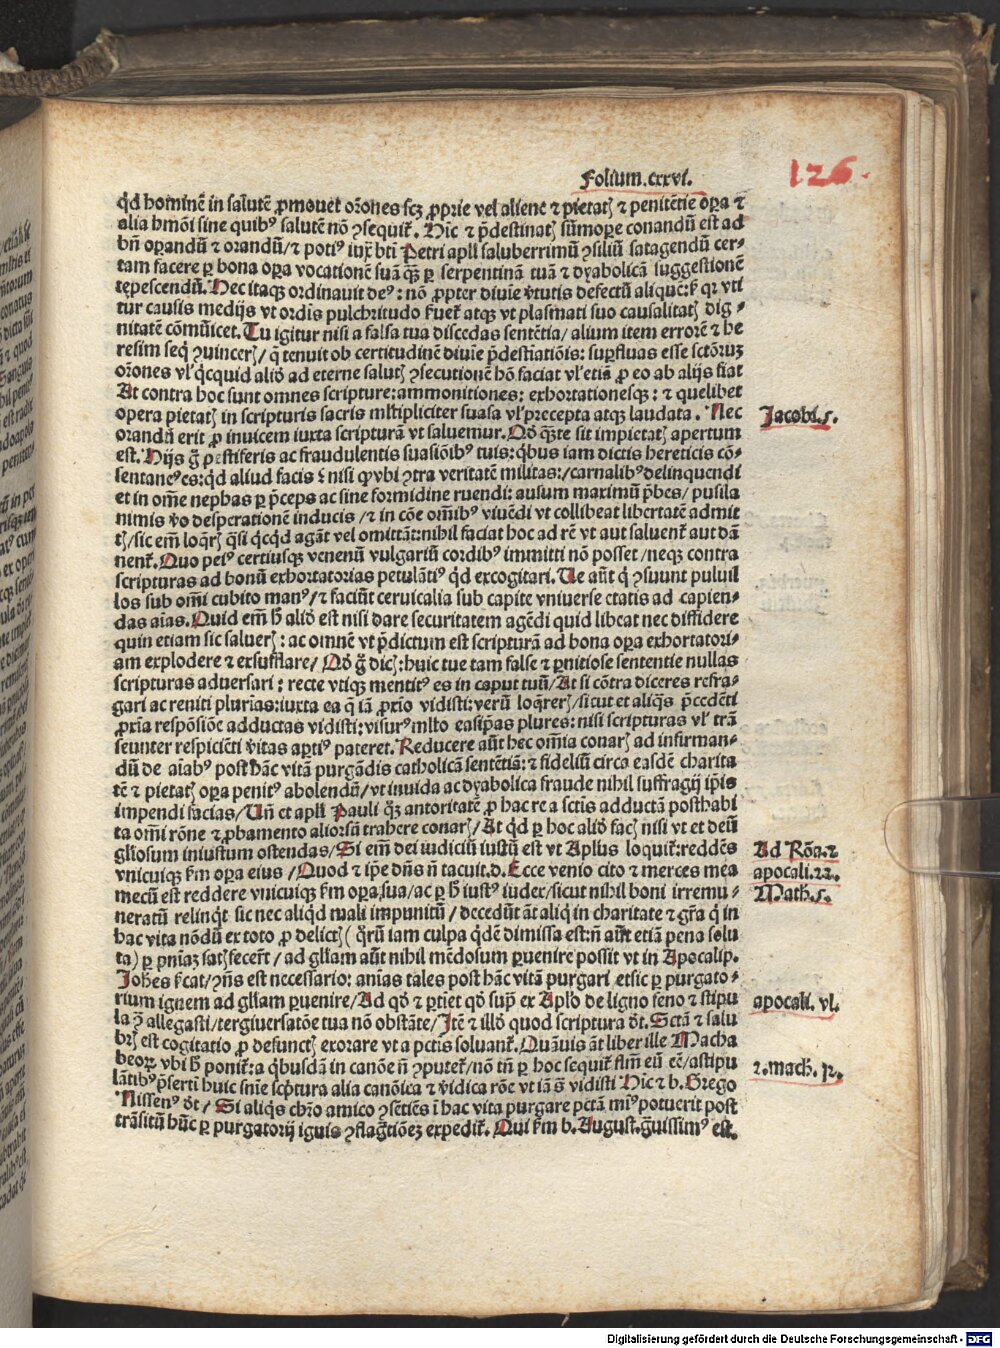 Folium.cxxvi.
126.
qd hominē in salutē ꝓmouet orōnes scz ꝓprie vel aliene ⁊ pietatꝭ ⁊ penitētie oꝑa ⁊
alia hmōi sine quibꝰ salutē nō ꝯsequit̄. Hic ⁊ p̄destinatꝭ sūmoꝑe conandū est ad
bn̄ oꝑandū ⁊ orandū/ ⁊ potiꝰ iux̄ bti Petri apli saluberrimū ꝯsiliū satagendū cer-
tam facere ꝑ bona oꝑa vocationē suā qꝫ ꝑ serpentinā tuā ⁊ dyabolicā suggestionē
tepescendū. Nec itaqꝫ ordinauit deꝰ: nō ꝓpter diuīe v̄tutis defectū aliquē: sꝫ qꝛ vti
tur causis medijs vt ordīs pulchritudo suet̄ atqꝫ vt plasmati suo causalitatꝭ dig-
nitatē cōmūicet. Tu igitur nisi a falsa tua discedas sentētia/ alium item errorē ⁊ he
resim seqꝭ ꝯuincerꝭ/ q̄ tenuit ob certitudinē diuīe p̄destīatiōis: suꝑfluas esse sctōꝝ
orōnes vl' qcquid aliō ad eterne salutꝭ ꝯsecutionē hō faciat vl' etiā ꝓ eo ab alijs fiat
At contra hoc sunt omnes scripture: ammonitiones: exhortationesqꝫ: ⁊ quelibet
opera pietatꝭ in scripturis sacris mltipliciter suasa vl' precepta atqꝫ laudata. Nec
orandū erit ꝓ inuicem iuxta scripturā vt saluemur. Qd qꝫte sit impietatꝭ apertum
est. Hijs g̊ pestiferis ac fraudulentis suasiōibꝰ tuis: qbus iam dictis hereticis cō-
sentaneꝰ es: qd aliud facis nisi ꝙ vbi ꝯtra veritatē militas:/ carnalibꝰ delinquendi
et in omē nephas ꝑ p̄ceps ac sine formidine ruendi: ausum maximū p̄bes/ pusila
nimis v̊o desperationē inducis/ ⁊ in cōe omībꝰ viuēdi vt collibeat libertatē admit
tꝭ/ sic em̄ loqrꝭ qsi qcqd agāt vel omittāt: nihil faciat hoc ad rē vt aut saluent̄ aut dā
nent̄. Quo peiꝰ certiusqꝫ venenū vulgariū cordibꝰ immitti nō posset/ neqꝫ contra
scripturas ad bonū exhortatorias petulātiꝰ qd excogitari. Ue aūt q̄ ꝯsuunt puluil
los sub omī cubito manꝰ/ ⁊ faciūt ceruicalia sub capite vniuerse etatis ad capien-
das aīas. Quid em̄ h̄ aliō est nisi dare securitatem agēdi quid libeat nec diffidere
quin etiam sic saluerꝭ: ac omnē vt p̄dictum est scripturā ad bona oꝑa exhortatori-
am explodere ⁊ exsufflare/ Qd g̊ dicꝭ: huic tue tam false ⁊ ꝑnitiose sententie nullas
scripturas aduersari: recte vtiqꝫ mentitꝰ es in caput tuū/ At si cōtra diceres refra-
gari ac reniti plurias: iuxta ea q̄ iā ꝓxio vidisti: verū loqrerꝭ/ sicut et aliqs p̄cedēti
ꝓxīa respōsiōe adductas vidisti: visurꝰ mlto easipas plures: nisi scripturas vl' trā
seunter respiciēti v̊itas aꝑtiꝰ pateret. Reducere aūt hec omīa conarꝭ ad infirman-
dū de aīabꝰ post hāc vitā purgādis catholicā sentētiā: ⁊ fideliū circa easdē charita
tē ⁊ pietatꝭ oꝑa penitꝰ abolendū/ vt inuida ac dyabolica fraude nihil suffragij ip̄is
impendi facias/ Un̄ et apli Pauli qꝫ autoritatē ꝓ hac re a sctīs adductā posthabi
ta omī rōne ⁊ ꝓbamento aliorsū trahere conarꝭ/ At qd ꝑ hoc aliō facꝭ nisi vt et deū
gliosum iniustum ostendas/ Si em̄ dei iudiciū iustū est vt Aplus loquit̄: reddēs
vnicuiqꝫ sm oꝑa eius/ Quod ⁊ ip̄e dn̄s n̄ tacuit. d. Ecce venio cito ⁊ merces mea
mecū est reddere vnicuiqꝫ sm oꝑa.sua/ ac ꝑ h̄ iustꝰ iudex/ sicut nihil boni irremu-
neratū relinqt sic nec aliqd mali impunitū/ decedūt āt aliq in charitate ⁊ gr̄a q̄ in
hac vita nōdū ex toto ꝓ delictꝭ (qrū iam culpa qdē dimissa est: n̄ aūt etiā pena solu
ta) ꝑ pn̄iaz satꝭfecer̄t/ ad gl̄iam aūt nihil mēdosum ꝑuenire possit vt in Apocalip.
Johēs scat/ ꝯn̄s est necessario: anīas tales post hāc vitā purgari et sic ꝑ purgato-
rium ignem ad gl̄iam ꝑuenire/ Ad qd ⁊ ꝑtiet qd sup̄ ex Aplo de ligno feno ⁊ stipu
la ꝫ allegasti/ tergiuersatōe tua nō obstāte/ Itē ⁊ illd quod scriptura dt. Sctā ⁊ salu
brꝭ est cogitatio ꝓ defunctꝭ exorare vt a pctis soluant̄. Quāuis āt liber ille Macha
beoꝝ vbi h̄ ponit̄: a qbusdā in canōe n̄ ꝯputet̄/ nō tn̄ ꝑ hoc sequit̄ flm eū eē/ astipu
lātibꝰ p̄serti huic snīe scptura alia canōica ⁊ v̊idica rōe vt iā vidisti Hic ⁊ b. Grego
Nissenꝰ dt/ Si aliqs chro amico ꝯsetiēs ī hac vita purgare pctā miꝰ potuerit post
trāsitū hūc ꝑ purgatorij ignis ꝯflagtiōez expedit̄. Qui sm b. August. g̊uissimꝰ est.
Jacobi.5.
Ad Rōa.2
apocali.22.
Math.5.
apocali. vl.
2.mach. 12.
Digitalisierung gefördert durch die Deutsche Forschungsgemeinschaft - DFG